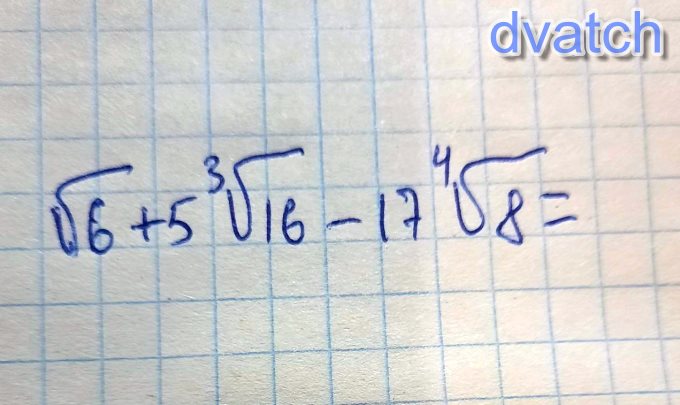 dvatch
√6 + 5 ³√16 - 17 ⁴√8 =